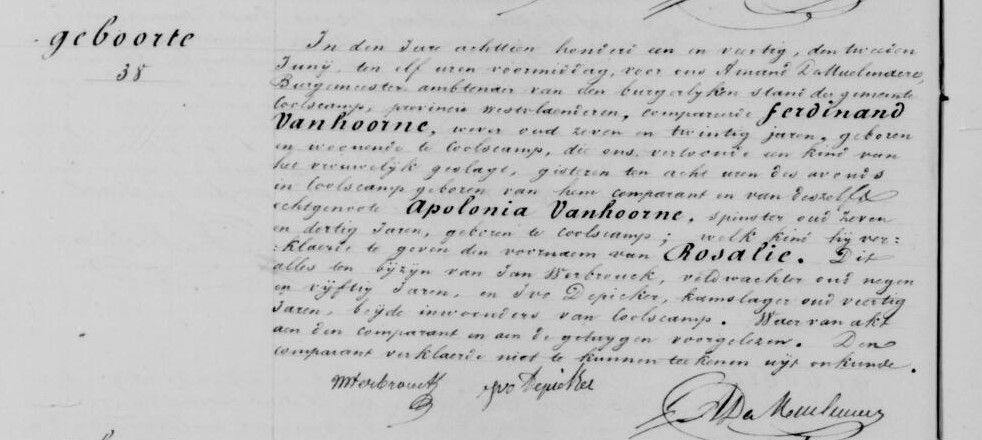 geboorte
38
In den Jare achttien honderd een en veertig, den tweeden
Junij, ten elf uren voormiddag, voor ons Amand DeMuelenaere,
Burgemeester ambtenaer van den burgerlyken stand der gemeente
Coolscamp, provincie Westvlaenderen, compareerde Ferdinand
Vanhoorne, wever oud zeven en twintig jaren, geboren
en woonende te Coolscamp, die ons vertoonde een kind van
het vrouwelyk geslagt, gisteren ten acht uren des avonds
in Coolscamp geboren van hem comparant en van deszelfs
echtgenoote Apolonia Vanhoorne, spinster oud zeven
en dertig Jaren, geboren te Coolscamp; welk kind hy ver=
=klaerde te geven den voornaem van Rosalie. Dit
alles ten byzyn van Jan Werbrouck, veldwachter oud negen
en vyftig Jaren, en Ivo Depicker, kamslager oud veertig
Jaren, beyde inwoonders van Coolscamp. Waer van akt
aen den comparant en aen de getuygen voorgelezen. Den
comparant verklaerde niet te kunnen teekenen uyt onkunde.
Werbrouck Ivo Depicker
ADeMuelenaere